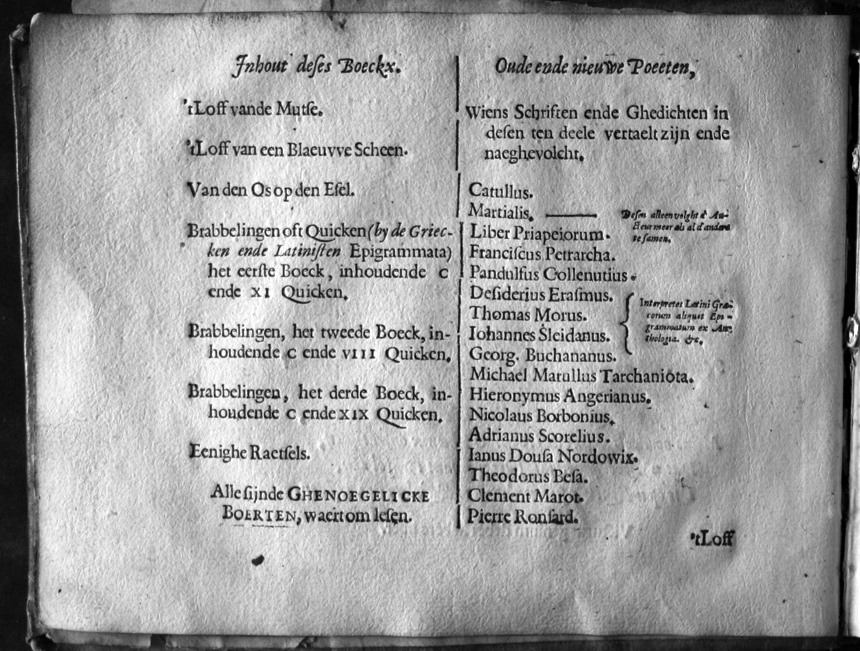 Inhout deses Boeckx.
'tLoff vande Mutſe.
'tLoff van een Blaeuvve Scheen.
Van den Os op den Eſel.
Brabbelingen oft Quicken (by de Griec-
ken ende Latiniſten Epigrammata)
het eerſte Boeck, inhoudende C
ende XI Quicken.
Brabbelingen, het tweede Boeck, in-
houdende C ende VIII Quicken.
Brabbelingen, het derde Boeck, in-
houdende C ende XIX Quicken.
Eenighe Raetſels.
Alle ſijnde GHENOEGELICKE
BOERTEN, waert om leſen.
Oude ende nieuwe Poeeten,
Wiens Schriften ende Ghedichten in
deſen ten deele vertaelt zijn ende
naeghevolcht.
Catullus.
Martialis.
Deſen alleen volght d' Au-
theur meer als al d'andere
te ſamen.
Liber Priapeiorum.
Franciſcus Petrarcha.
Pandulfus Collenutius.
Deſiderius Eraſmus.
Thomas Morus.
Iohannes Sleidanus.
Georg. Buchananus.
Interpretes Latini Græ-
corum aliquot Epi-
grammatum ex An-
thologia. &c.
Michael Marullus Tarchaniota.
Hieronymus Angerianus.
Nicolaus Borbonius.
Adrianus Scorelius.
Ianus Douſa Nordowix.
Theodorus Beſa.
Clement Marot.
Pierre Ronſard.
'tLoff